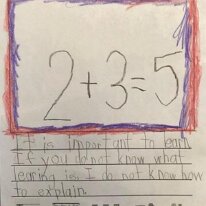 2+3=5
It is important to learn
If you do not know what
learing is. I do not know how
to explain.